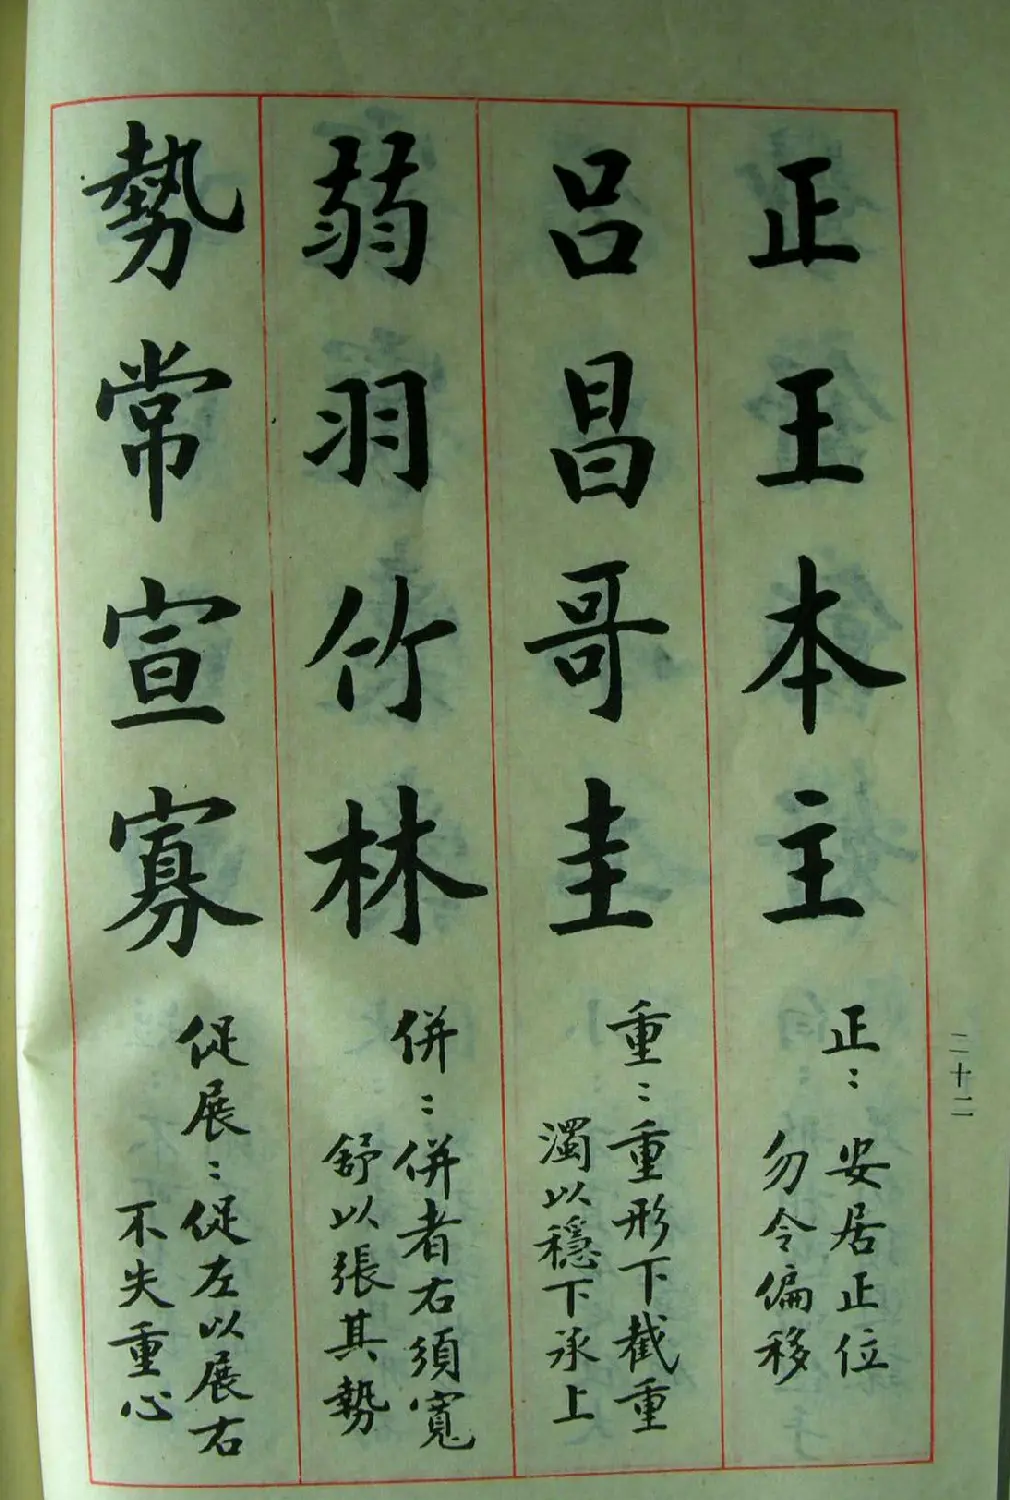 正王本主
正：安居正位
勿令偏移
呂昌哥圭
重：重形下截重
濁以穩下承上
弱羽竹林
併：併者右須寬
舒以張其勢
勢常宣寡
促展：促左以展右
不失重心
二十二